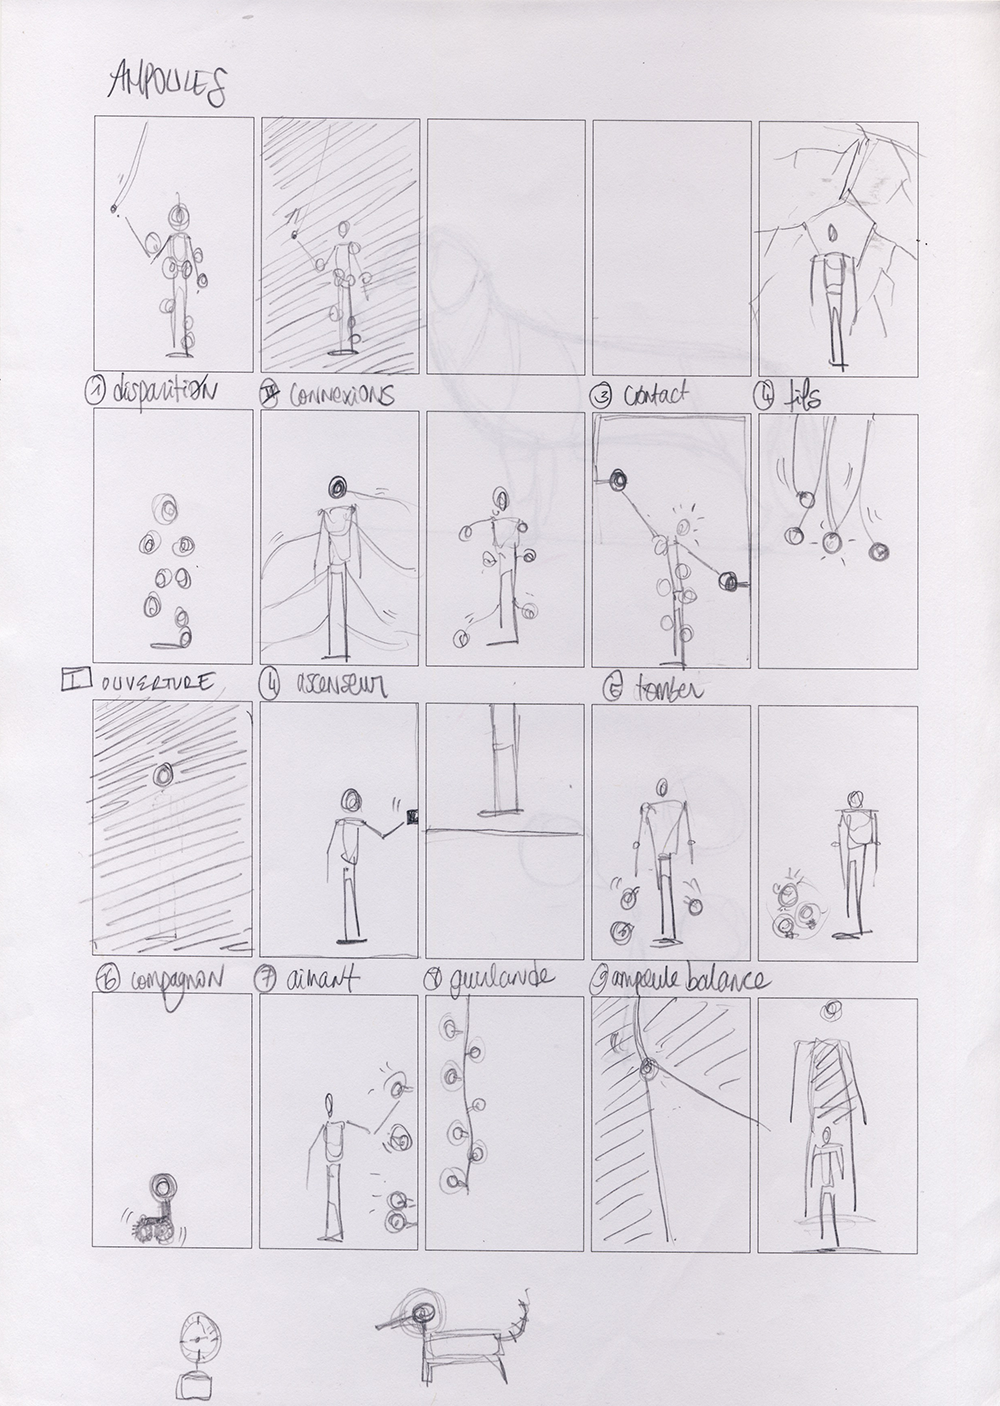 AMPOULES
① disparition
connexions
③ contact
④ fils
I OUVERTURE
④ ascenseur
⑥ tomber
⑥ compagnon
⑦ aimant
⑧ guirlande
⑨ ampoule balance